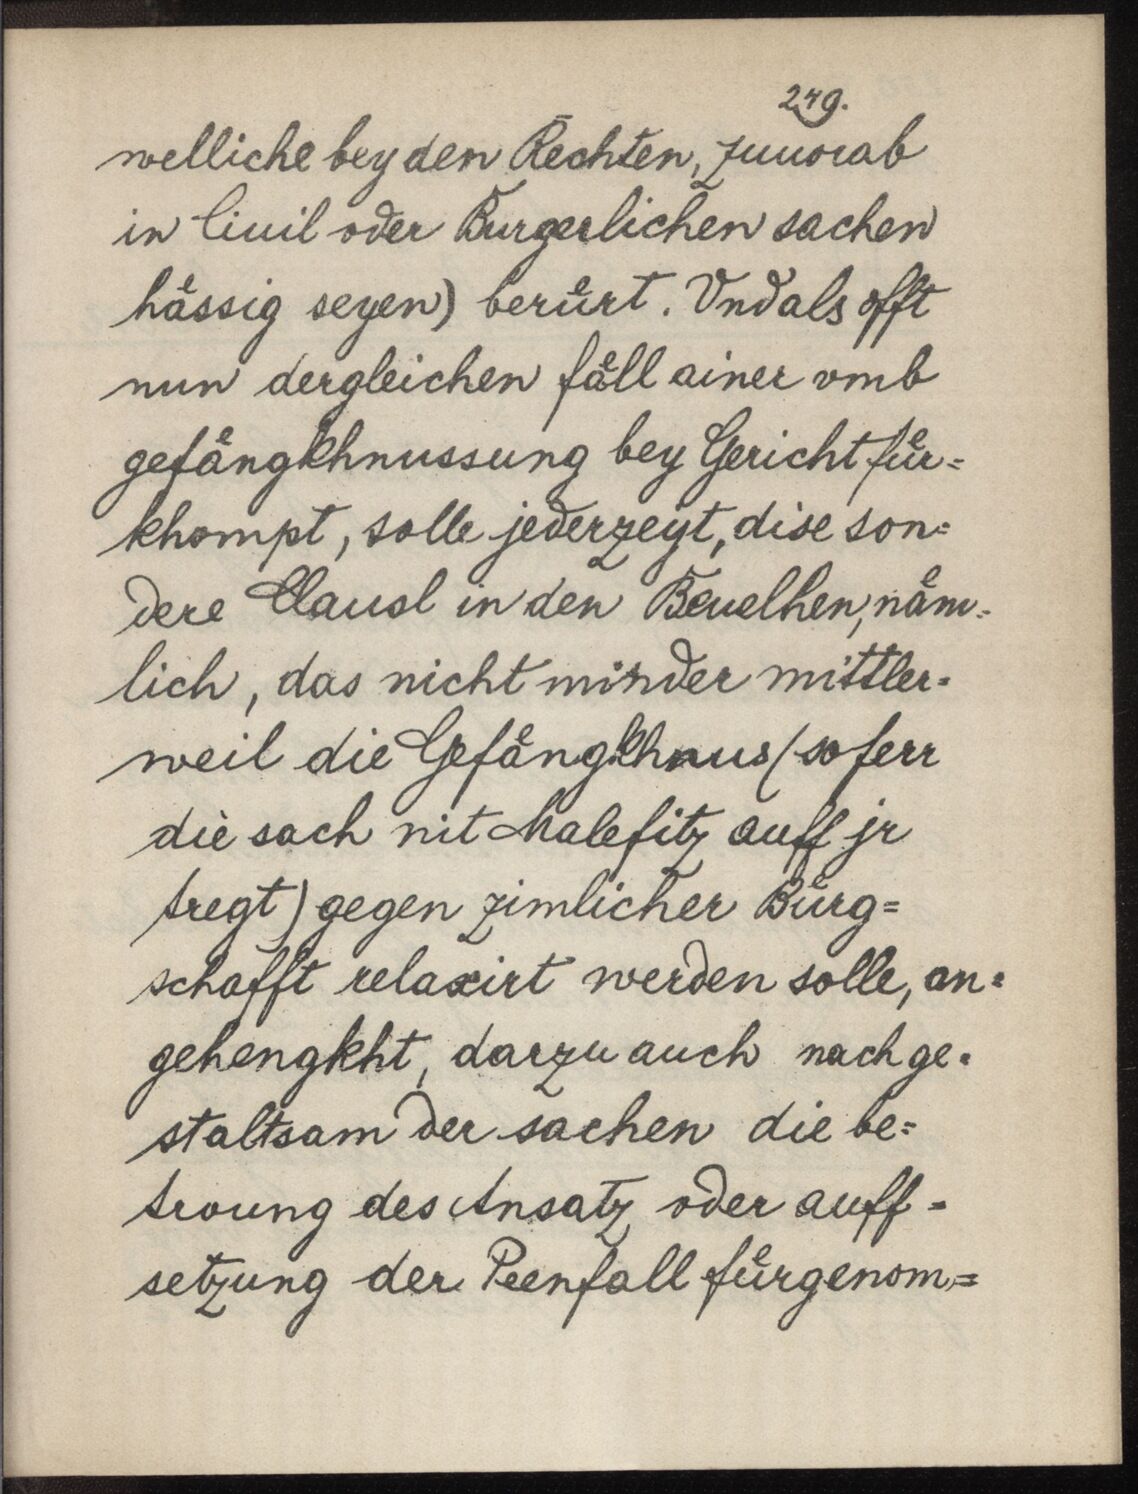 249.
welliche bey den Rechten, zuuorab
in Ciuil oder Burgerlichen sachen
håssig seyen) berůrt. Vnd als offt
nun dergleichen fåll ainer vmb
gefångkhnussung bey Gericht fůr=
khompt, solle jederzeyt, dise son=
dere Clausl in den Beuelhen, nåm=
lich, das nicht minder mittler=
weil die Gefångkhnus (so ferr
die sach nit Malefitz auff jr
tregt) gegen zimlicher Bürg=
schafft relaxirt werden solle, an=
gehengkht, darzu auch nach ge=
staltsam der sachen die be=
troung des Ansatz oder auff=
setzung der Peenfall fůrgenom=